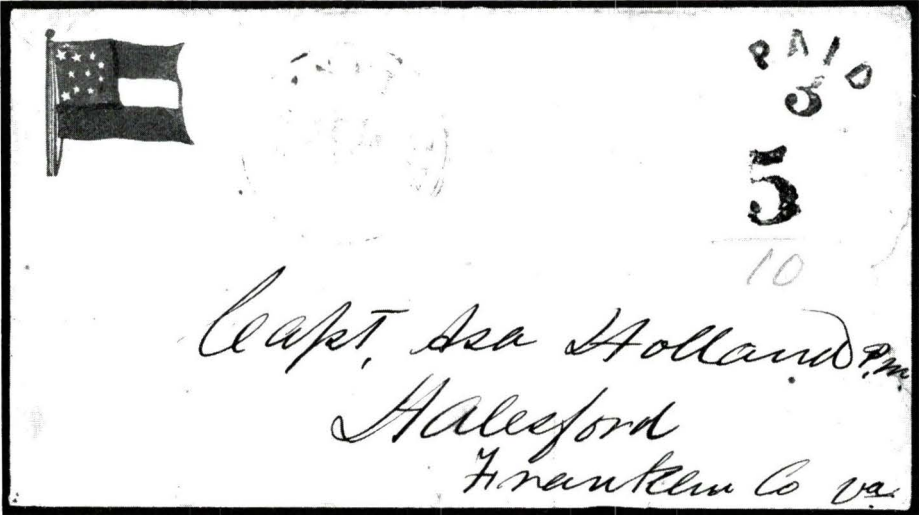 PAID
5
5
10
Capt, Asa Holland P.m.
Halesford
Franklin Co va.